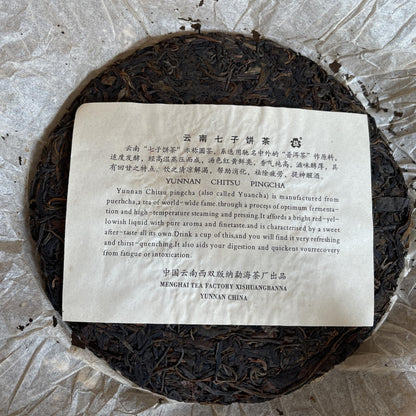 云南七子饼茶
云南“七子饼茶”亦称圆茶，系选用驰名中外的“普洱茶”作原料，
适度发酵，经高温蒸压而成，汤色红黄鲜亮，香气纯高，滋味醇厚，具
有回甘之特点，饮之清凉解渴，帮助消化，祛除疲劳，提神醒酒。
YUNNAN CHITSU PINGCHA
Yunnan Chitsu pingcha (also called Yuancha) is manufactured from
puerhcha,a tea of world-wide fame.through a process of optimum fermenta-
tion and high-temperature steaming and pressing.It affords a bright red-yel-
lowish liquid with pure aroma and finetaste.and is characterised by a sweet
after-taste all its own.Drink a cup of this,and you will find it very refreshing
and thirst-quenching.It also aids your digestion and quickens yourrecovery
from fatigue or intoxication.
中国云南西双版纳勐海茶厂出品
MENGHAI TEA FACTORY XISHUANGBANNA
YUNNAN CHINA